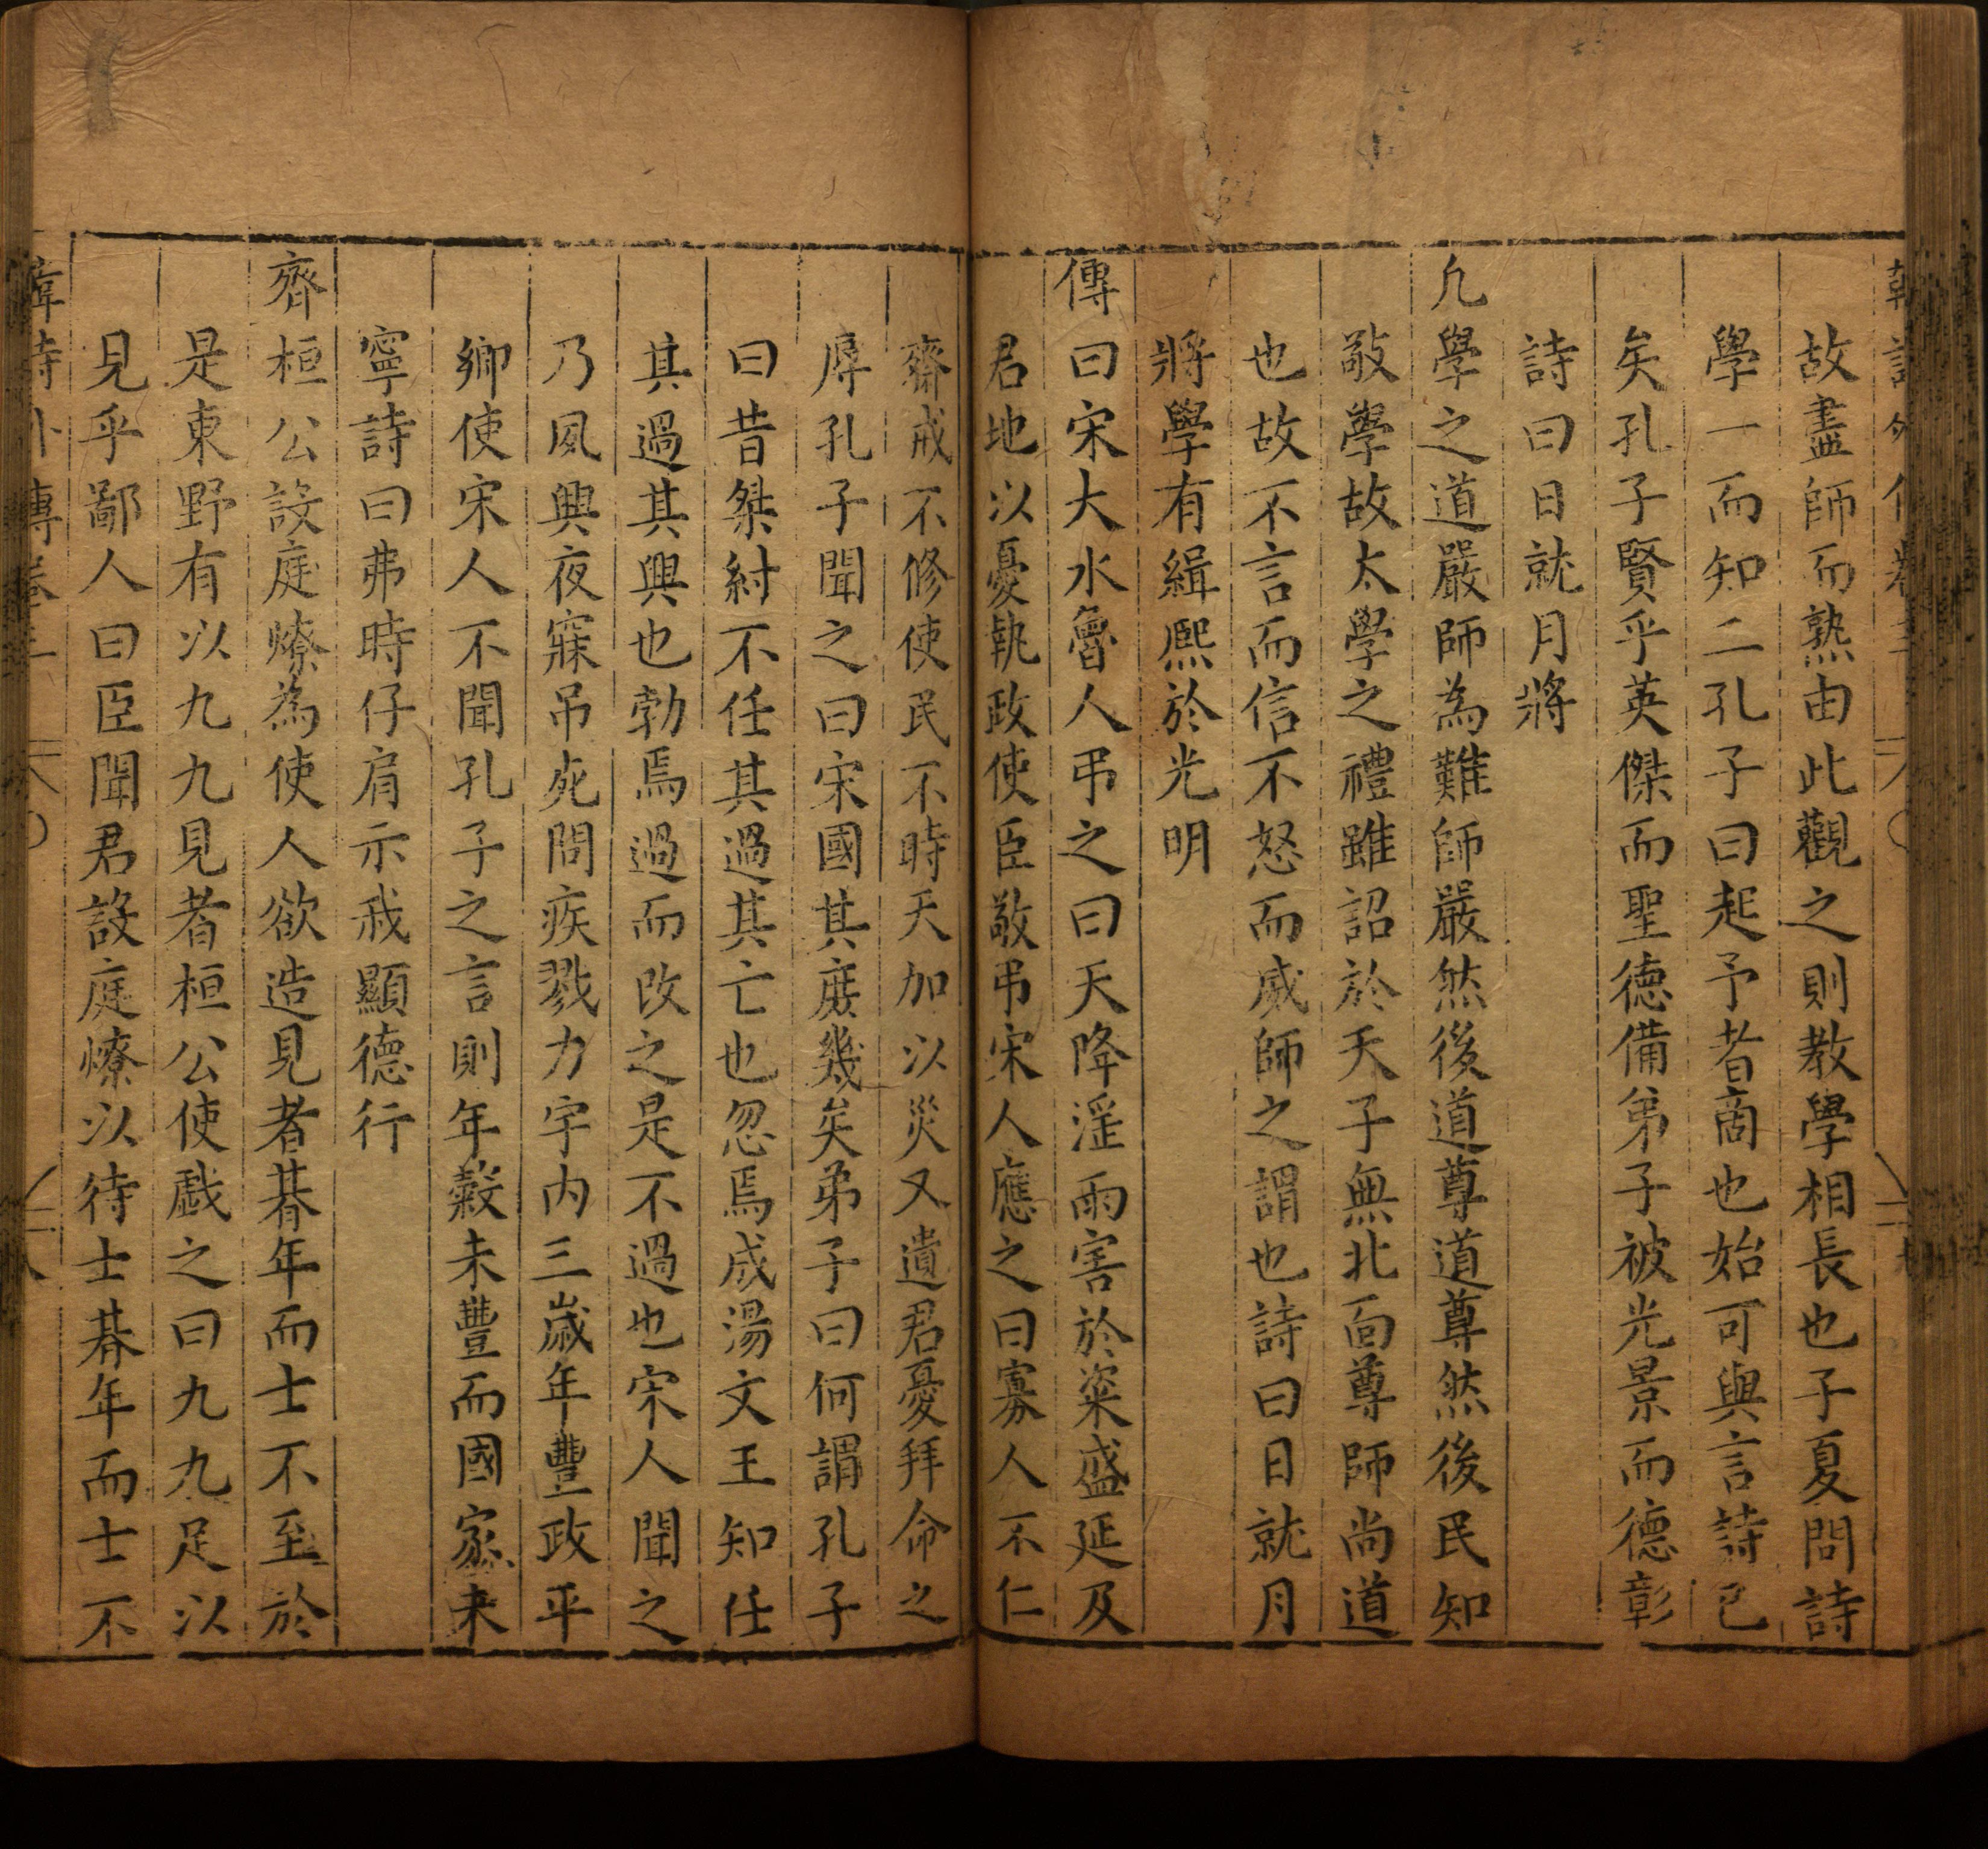 故盡師而熟由此觀之則教學相長也子夏問詩
學一而知二孔子曰起予者商也始可與言詩已
矣孔子賢乎英傑而聖德備弟子被光景而德彰
詩曰日就月將
凢學之道嚴師為難師嚴然後道尊道尊然後民知
敬學故太學之禮雖詔於天子無北面尊師尚道
也故不言而信不怒而威師之謂也詩曰日就月
將學有緝熈於光明
傳曰宋大水魯人弔之曰天降淫雨害於粢盛延及
君地以憂執政使臣敬弔宋人應之曰寡人不仁
齋戒不修使民不時天加以災又遺君憂拜命之
辱孔子聞之曰宋國其庶幾矣弟子曰何謂孔子
曰昔桀紂不任其過其亡也忽焉成湯文王知任
其過其興也勃焉過而改之是不過也宋人聞之
乃夙興夜寐吊死問疾戮力宇内三嵗年豐政平
鄉使宋人不聞孔子之言則年穀未豐而國家未
寧詩曰弗時仔肩示我顯德行
齊桓公設庭燎為使人欲造見者朞年而士不至於
是東野有以九九見者桓公使戲之曰九九足以
見乎鄙人曰臣聞君設庭燎以待士朞年而士不